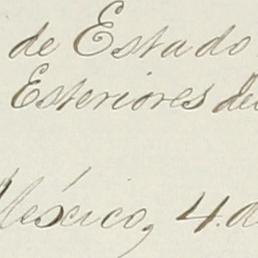 de Estado
Esteriores del
México, 4. d